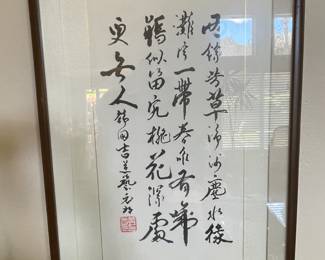 雨餘芳草淨沙塵水綠
灘平一帶春唯有啼
鵑似留客桃花深處
更無人